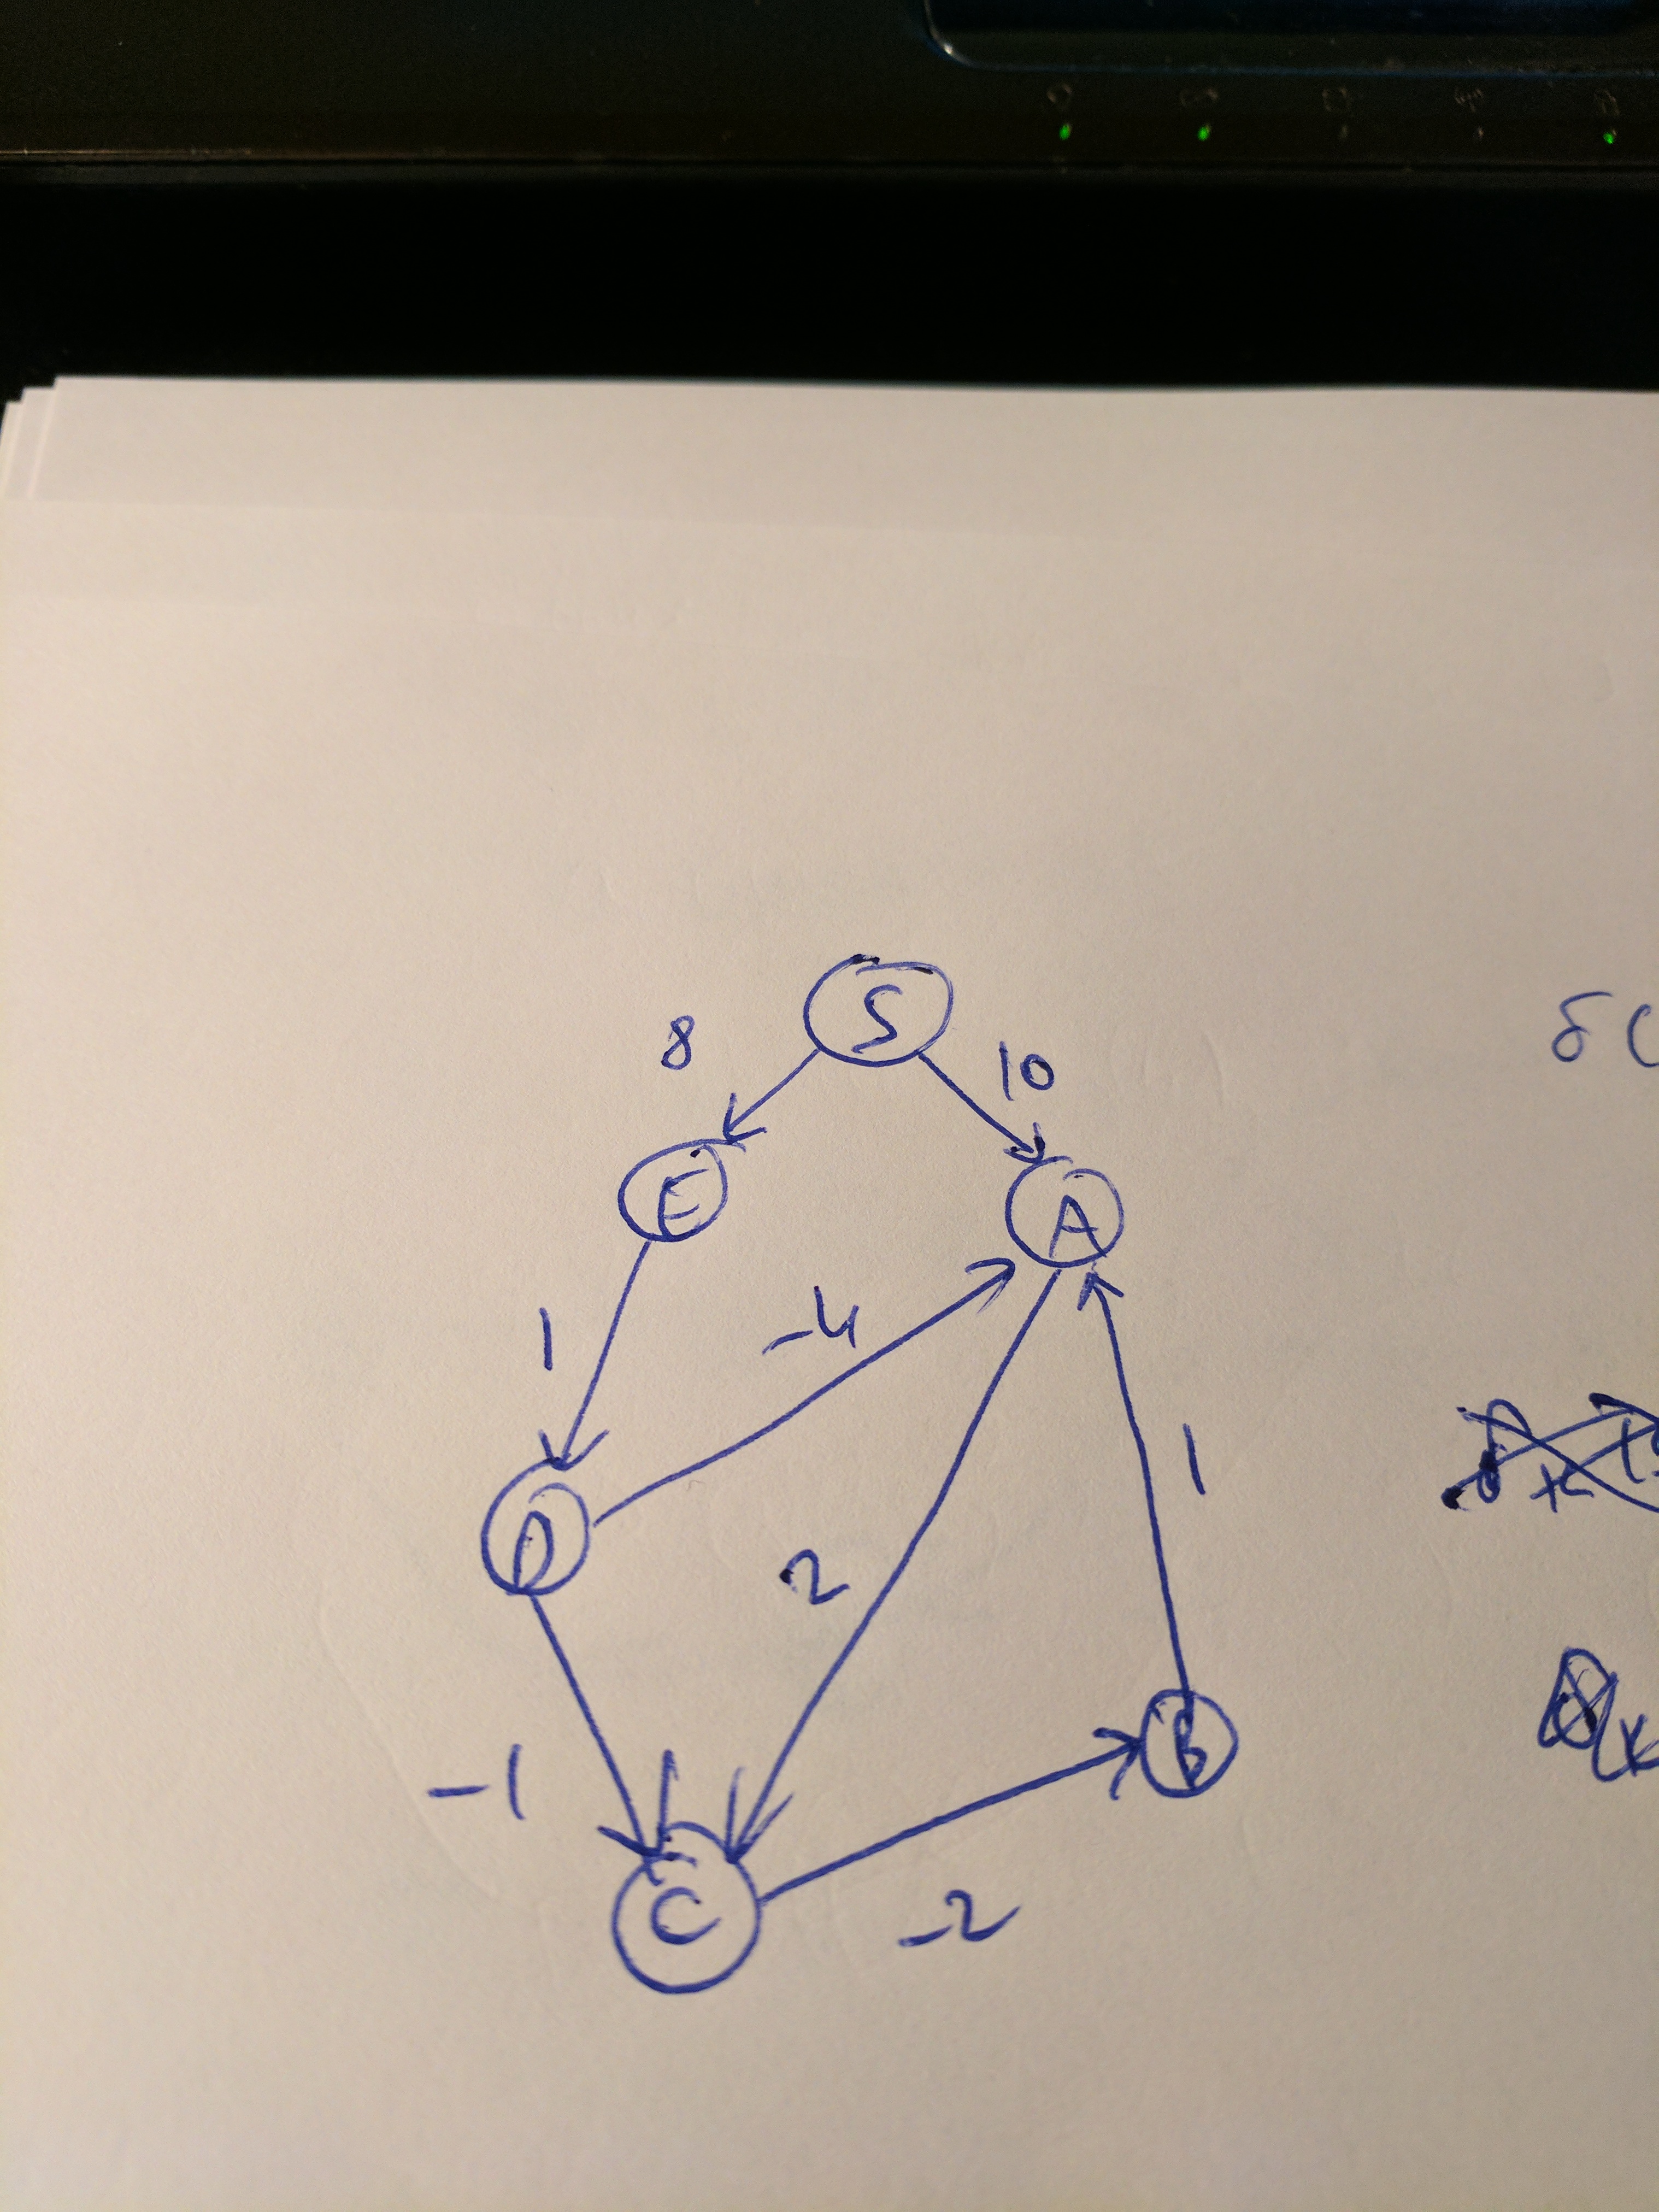 S
8
10
E
A
1
-4
1
D
2
B
-1
C
-2
δ(